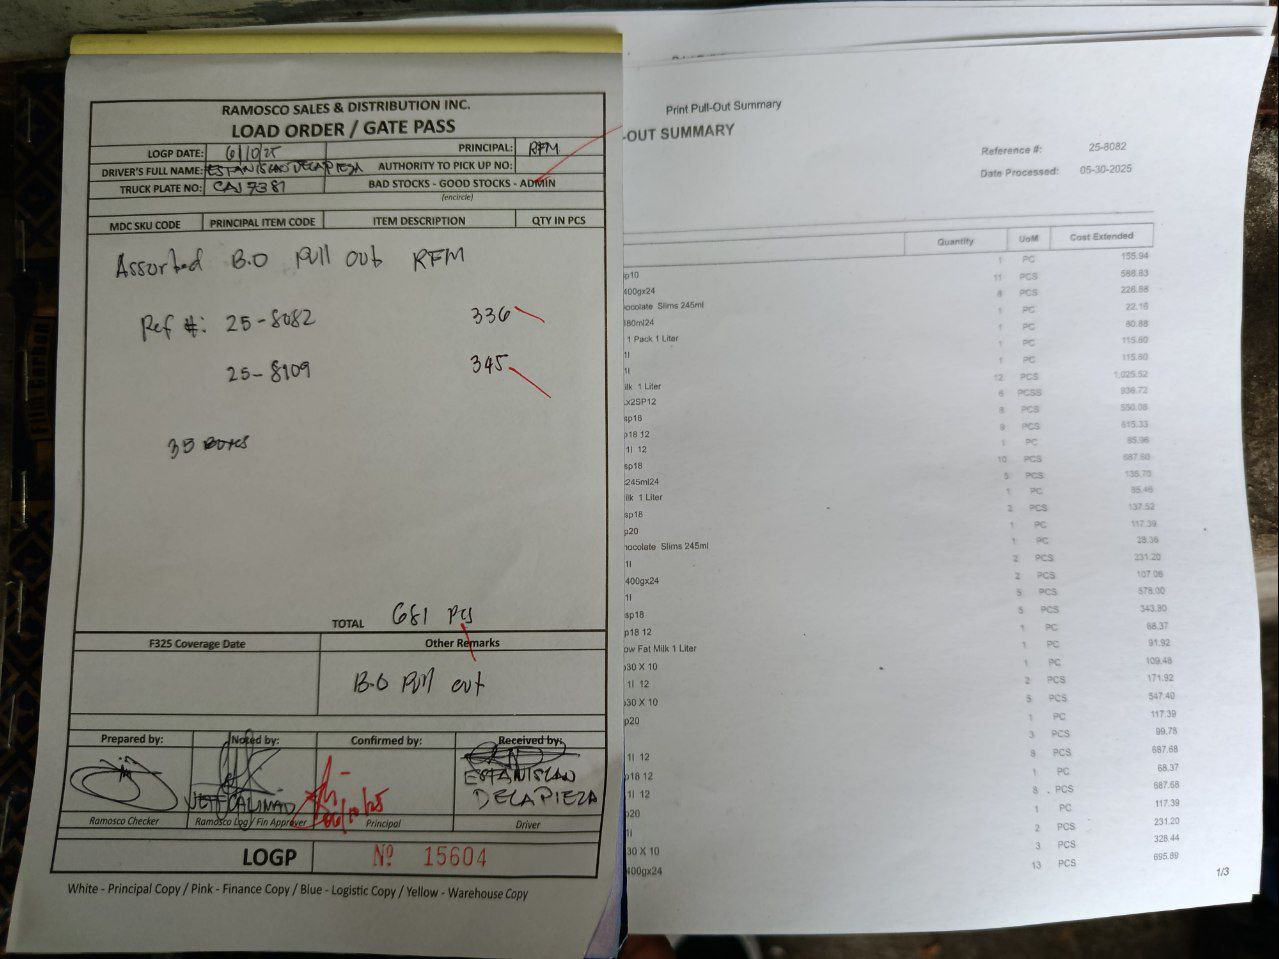 RAMOSCO SALES & DISTRIBUTION INC.
LOAD ORDER / GATE PASS
LOGP DATE: 6/10/25 PRINCIPAL: RFM
DRIVER'S FULL NAME: ESTANISLAO DECAPIEZA AUTHORITY TO PICK UP NO:
TRUCK PLATE NO: CAJ 7381 BAD STOCKS - GOOD STOCKS - ADMIN
(encircle)
MDC SKU CODE PRINCIPAL ITEM CODE ITEM DESCRIPTION QTY IN PCS
Assorted B.O pull out RFM
Ref #: 25-8082 336
25-8109 345
35 Boxes
TOTAL 681 pcs
F325 Coverage Date Other Remarks
B.O Pull out
Prepared by: Noted by: Confirmed by: Received by:
ESTANISLAO
DECAPIEZA
06/10/25
Ramosco Checker Ramosco Log / Fin Approver Principal Driver
LOGP Nº 15604
White - Principal Copy / Pink - Finance Copy / Blue - Logistic Copy / Yellow - Warehouse Copy
Print Pull-Out Summary
-OUT SUMMARY
Reference #: 25-8082
Date Processed: 05-30-2025
Quantity UoM Cost Extended
1 PC 155.94
p10 11 PCS 588.83
400gx24 8 PCS 226.68
ocolate Slims 245ml 1 PC 22.16
180ml24 1 PC 80.88
1 Pack 1 Liter 1 PC 115.60
1l 1 PC 115.60
1l 12 PCS 1,025.52
ilk 1 Liter 6 PCSS 936.72
x2SP12 8 PCS 550.08
sp18 9 PCS 615.33
p18 12 1 PC 85.96
1l 12 10 PCS 687.60
sp18 5 PCS 135.70
245ml24 1 PC 85.46
ilk 1 Liter 2 PCS 137.52
sp18 1 PC 117.39
p20 1 PC 28.36
ocolate Slims 245ml 2 PCS 231.20
1l 2 PCS 107.06
400gx24 5 PCS 578.00
1l 5 PCS 343.80
sp18 1 PC 68.37
p18 12 1 PC 91.92
ow Fat Milk 1 Liter 1 PC 109.48
p30 X 10 2 PCS 171.92
1l 12 5 PCS 547.40
p30 X 10 1 PC 117.39
p20 3 PC 99.78
8 PCS 687.68
1l 12 1 PC 68.37
p18 12 8 PCS 687.68
1l 12 1 PC 117.39
p20 2 PCS 231.20
1l 3 PCS 328.44
30 X 10 13 PCS 695.89
400gx24
1/3